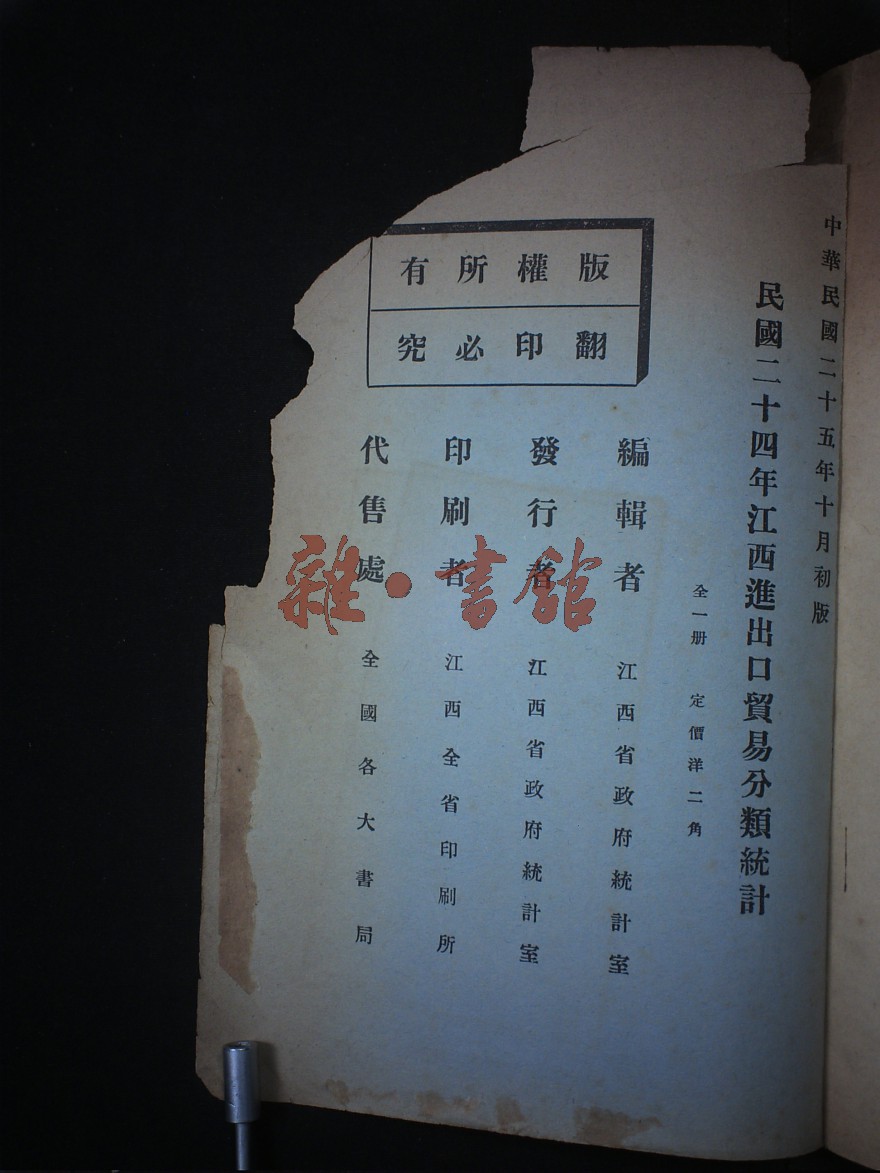 中華民國二十五年十月初版
民國二十四年江西進出口貿易分類統計
全一册　定價洋二角
版權所有
翻印必究
編輯者　江西省政府統計室
發行者　江西省政府統計室
印刷者　江西全省印刷所
代售處　全國各大書局
雜·書館